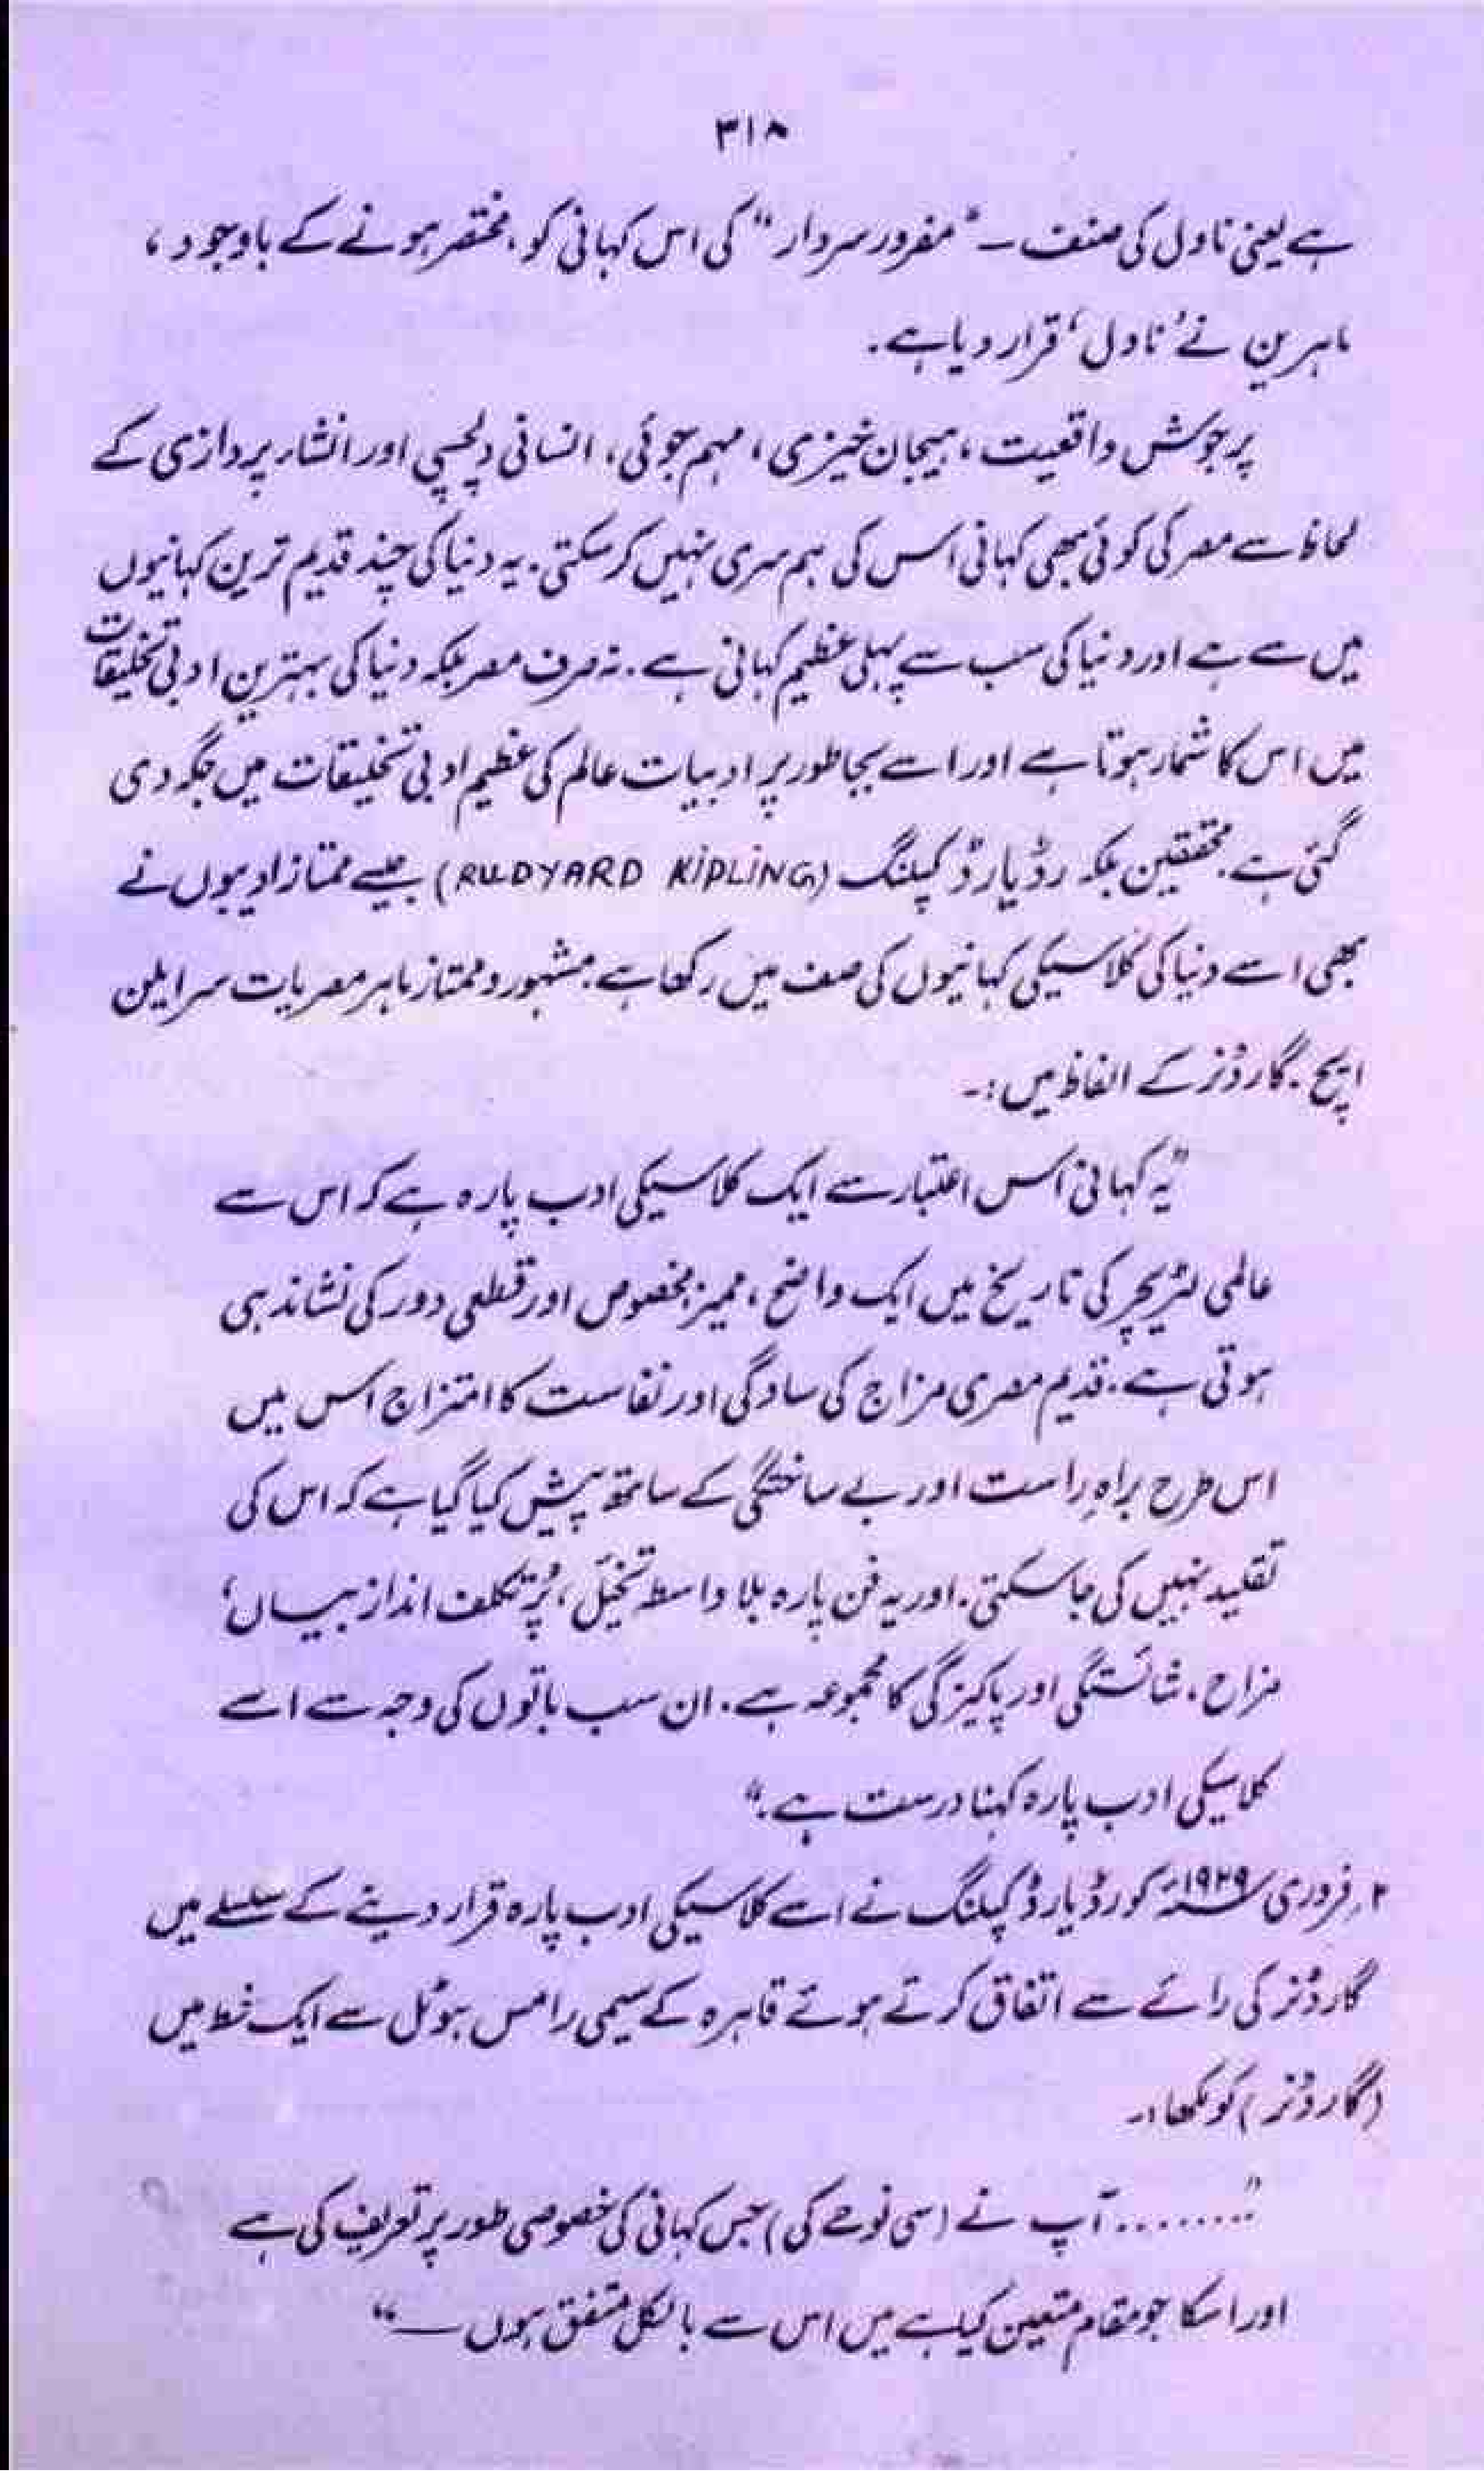 ۳۱۸
ہے یعنی ناول کی صنف ۔ "مفرور سردار" کی اس کہانی کو، مختصر ہونے کے باوجود،
ماہرین نے 'ناول' قرار دیا ہے۔
پرجوش واقعیت، ہیجان خیزی، مہم جوئی، انسانی دلچسپی اور انشاء پردازی کے
لحاظ سے مصر کی کوئی بھی کہانی اس کی ہم سری نہیں کر سکتی۔ یہ دنیا کی چند قدیم ترین کہانیوں
میں سے ہے اور دنیا کی سب سے پہلی عظیم کہانی ہے۔ نہ صرف مصر بلکہ دنیا کی بہترین ادبی تخلیقات
میں اس کا شمار ہوتا ہے اور اسے بجا طور پر ادبیات عالم کی عظیم ادبی تخلیقات میں جگہ دی
گئی ہے۔ محققین بلکہ رڈیارڈ کپلنگ (RUDYARD KIPLING) جیسے ممتاز ادیبوں نے
بھی اسے دنیا کی کلاسیکی کہانیوں کی صف میں رکھا ہے۔ مشہور و ممتاز ماہر مصریات سر ایلن
ایچ۔ گارڈنر کے الفاظ میں:۔
"یہ کہانی اس اعتبار سے ایک کلاسیکی ادب پارہ ہے کہ اس سے
عالمی لٹریچر کی تاریخ میں ایک واضح، ممیز، مخصوص اور قطعی دور کی نشاندہی
ہوتی ہے۔ قدیم مصری مزاج کی سادگی اور نفاست کا امتزاج اس میں
اس طرح براہِ راست اور بے ساختگی کے ساتھ پیش کیا گیا ہے کہ اس کی
تقلید نہیں کی جا سکتی۔ اور یہ فن پارہ بلا واسطہ تخیّل، پُر تکلف انداز بیان،
مزاح، شائستگی اور پاکیزگی کا مجموعہ ہے۔ ان سب باتوں کی وجہ سے اسے
کلاسیکی ادب پارہ کہنا درست ہے۔"
۲ فروری ۱۹۲۹ء کو رڈیارڈ کپلنگ نے اسے کلاسیکی ادب پارہ قرار دینے کے سلسلے میں
گارڈنر کی رائے سے اتفاق کرتے ہوئے قاہرہ کے سیمی رامس ہوٹل سے ایک خط میں
(گارڈنر) کو لکھا:۔
"........ آپ نے (سی نوحے کی) جس کہانی کی خصوصی طور پر تعریف کی ہے
اور اسکا جو مقام متعین کیا ہے میں اس سے بالکل متفق ہوں ــ"